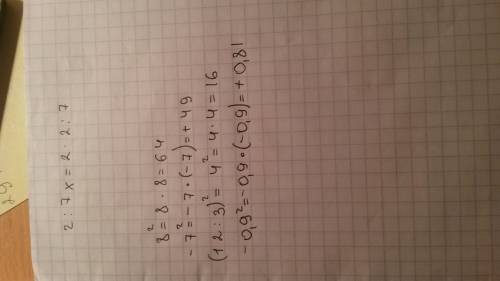 2 : 7 x = 2 · 2 : 7
8² = 8 · 8 = 64
- 7² = - 7 · (- 7) = + 49
(12 : 3)² = 4² = 4 · 4 = 16
- 0,9² = - 0,9 · (- 0,9) = + 0,81